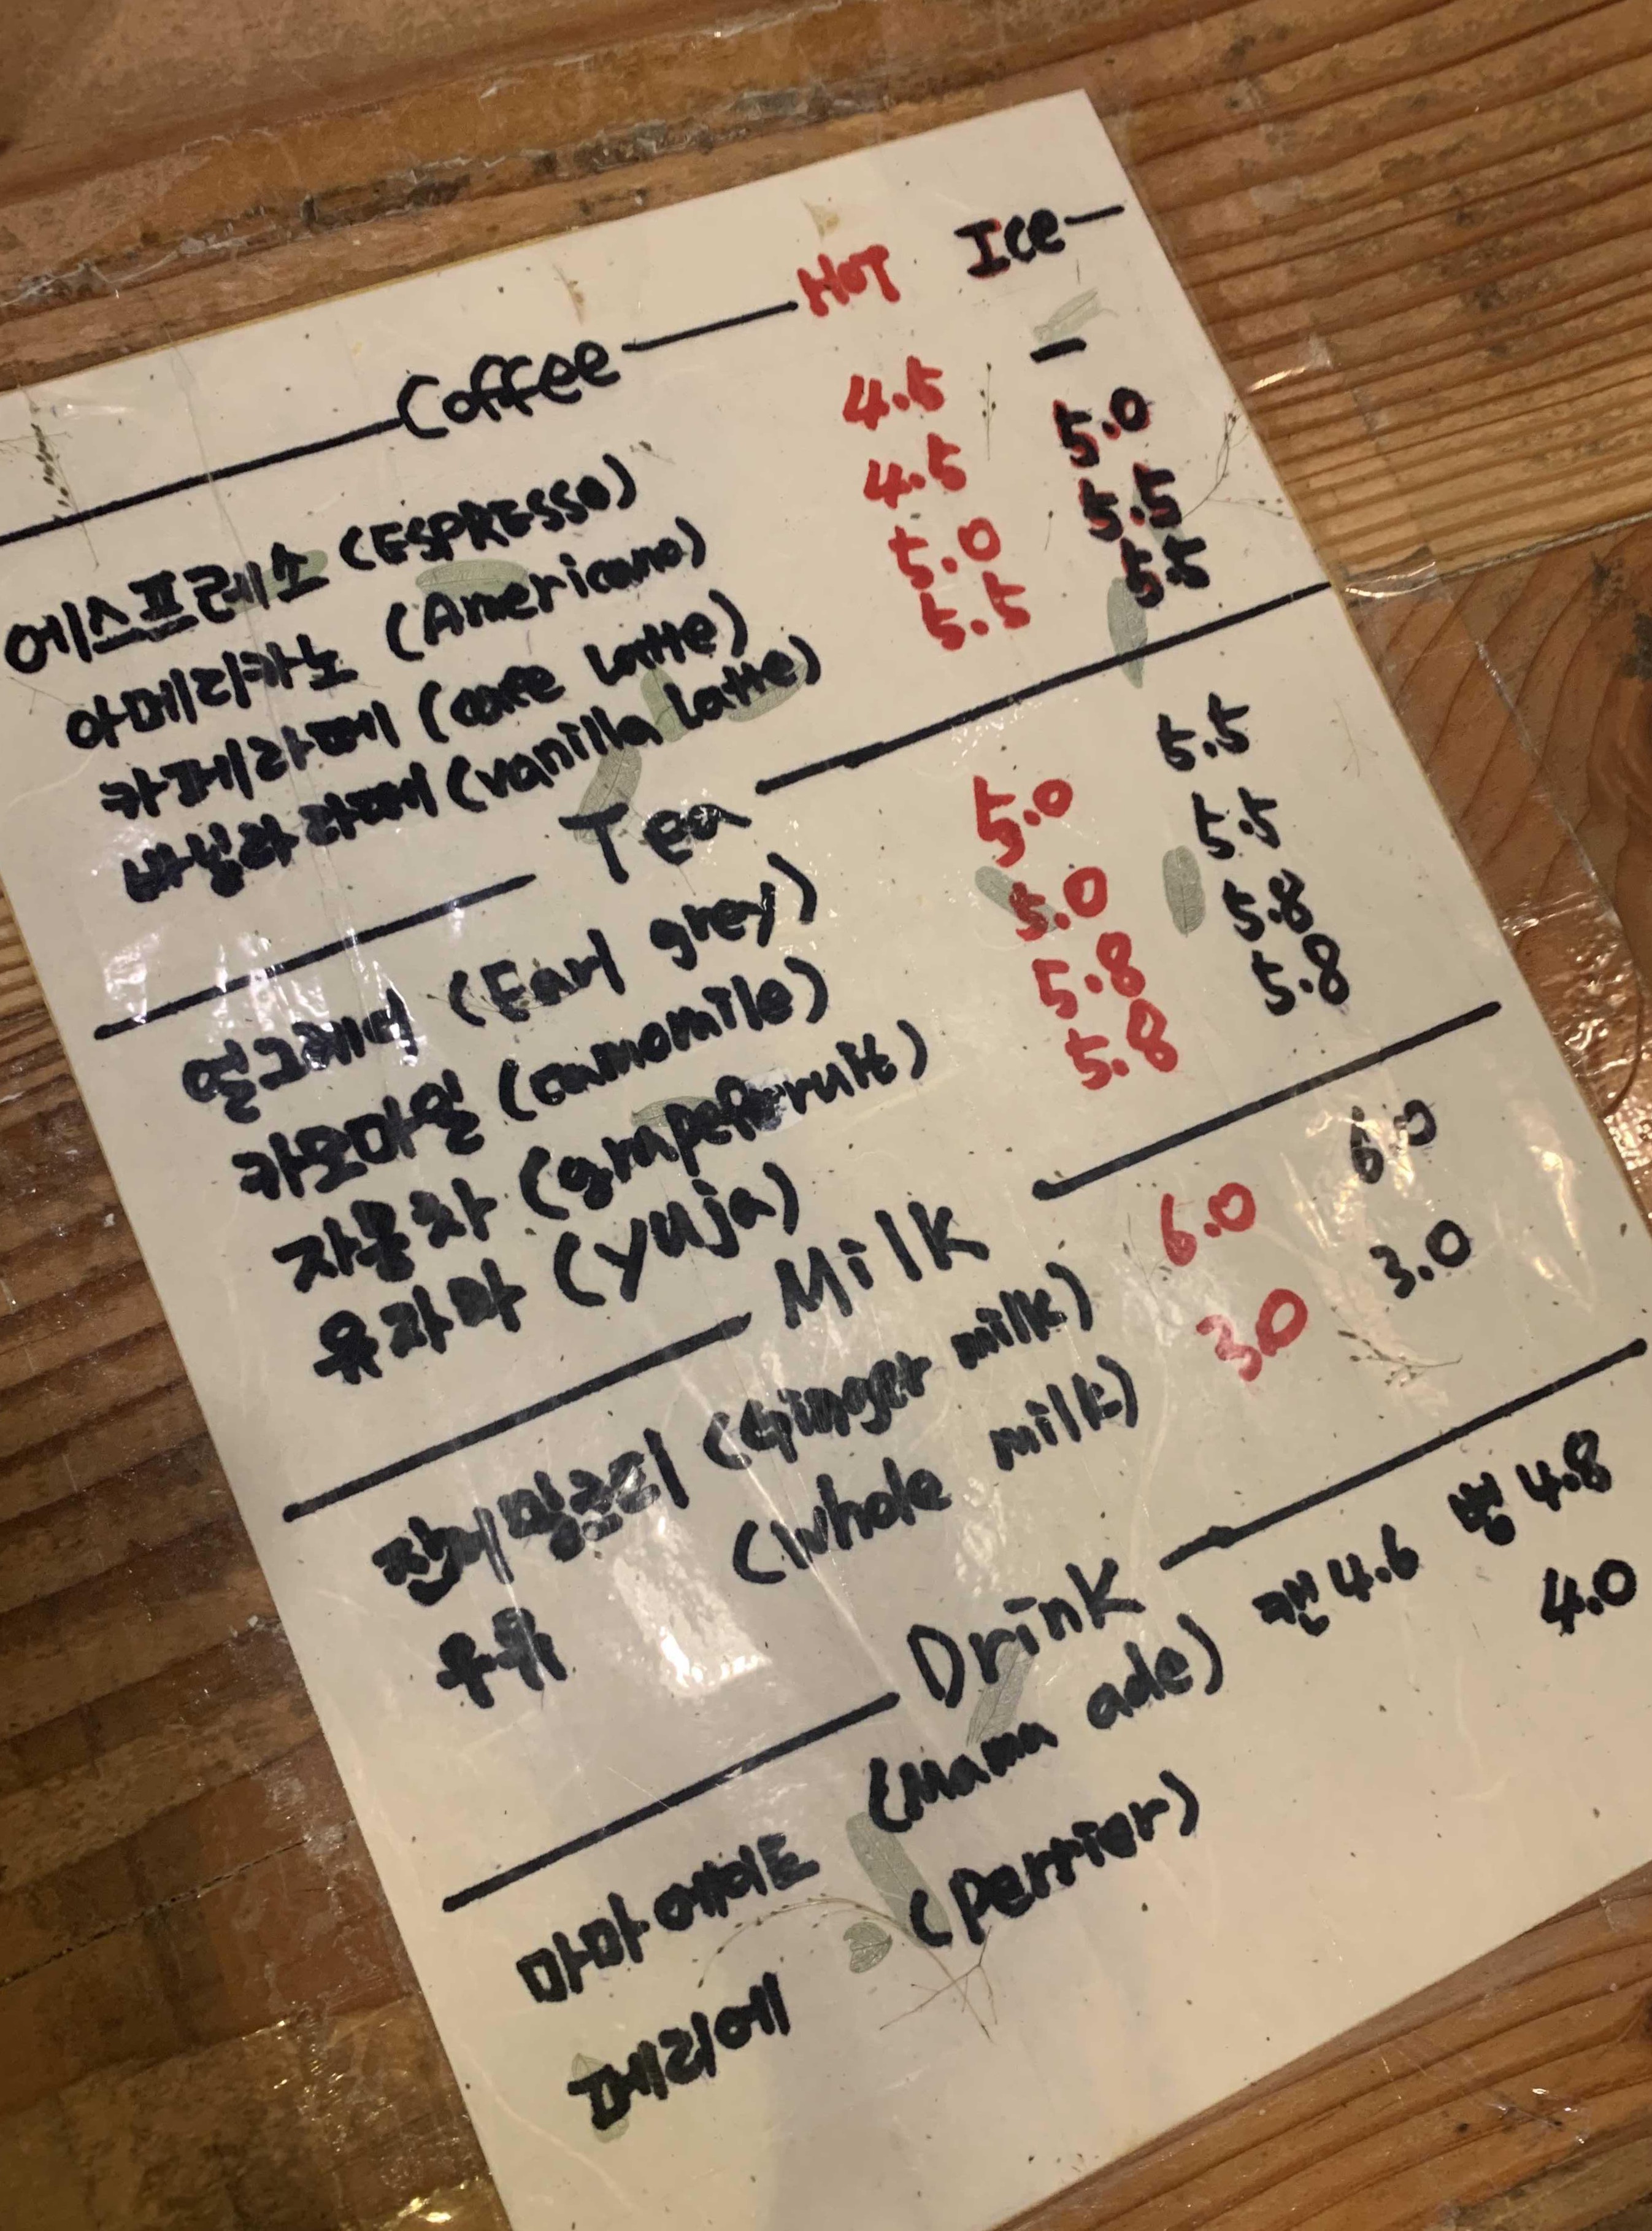 Coffee HOT Ice
에스프레소 (ESPRESSO) 4.5 -
아메리카노 (Americano) 4.5 5.0
카페라떼 (cafe latte) 5.0 5.5
바닐라라떼 (vanilla latte) 5.5 5.5
Tea
얼그레이 (Earl grey) 5.0 5.5
카모마일 (camomile) 5.0 5.5
자몽차 (grapefruit) 5.8 5.8
유자차 (yuja) 5.8 5.8
Milk
진저밀크티 (Ginger milk) 6.0 6.0
우유 (whole milk) 3.0 3.0
Drink
마마에이드 (Mama ade) 캔 4.6 병 4.8
페리에 (perrier) 4.0